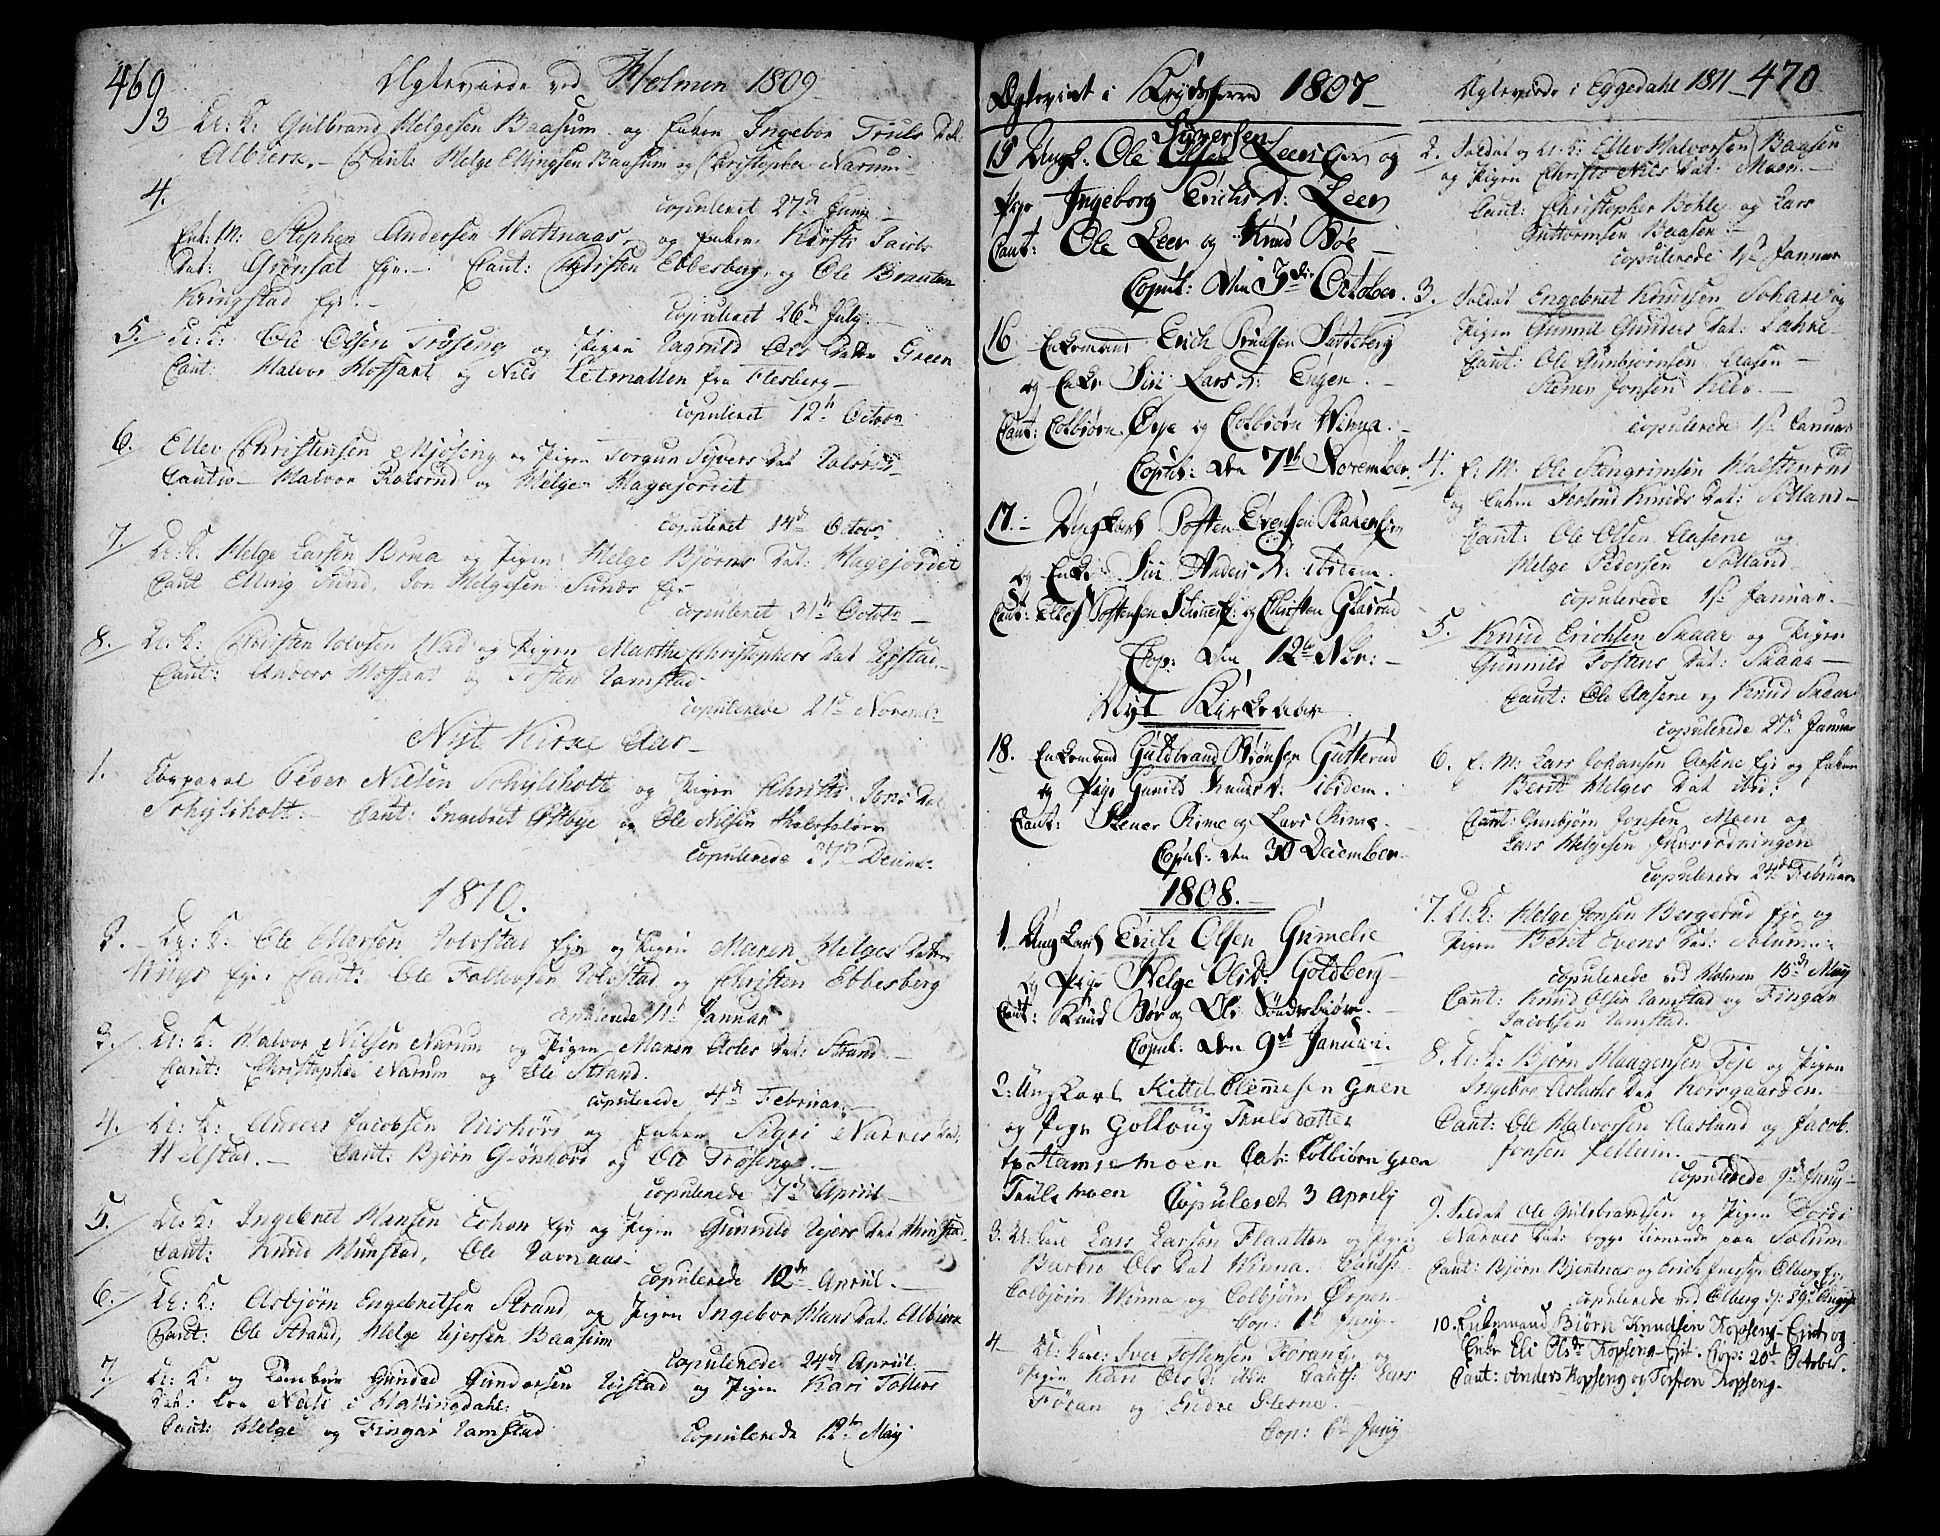 469
Ægteviede ved Holmen 1809
3 U: K: Gulbrand Helgesen Baasum og Enken Ingebor Truls Dat
Albiera. Caut: Helge Ellingsen Baasum og Christopher Narum
copuleret 27de Junii
4. Enk: M: Stephen Andersen Wattnaas og Enken Kirsti Jacobs
Dat: Grønsat Eje. Caut: Christen Ebbesberg, og Ole Braaten
Kringstad Eje.
copuleret 26d July
5. U: K: Ole Olsen Frøseng og Pigen Ragnild Ols Datter Green
Caut: Halvor Hoffart og Nils Letmalien fra Flesberg
copuleret 12te Octobr
6. Ellev Christensen Mjøseng og Pigen Jorgun Sivers Dat
Cautio Halvor Kolsrud og Helge Hagajordet
copuleret 14d Octobr
7 U: K: Helge Larsen Brua og Pigen Helge Bjørns Dat: Hagejordet
Caut Elling Sund, Jon Helgesen Sunds Eje
copuleret 31te Octobr
8. U: K: Christen og Pigen Marthe Christophers Dat
Caut: Anders Hoffart og Tosten Ramstad
copulerede 21de Novemb:
Nÿt Kirke Aar
1. Corporal Peder Nielsen Schylsholtt og Pigen Christi Jons Dat
Schylsholt. Caut: Ingebret Østbye og Ole Nilsen
copulerede 27de Decemb:
1810.
2. U: K: Ole Olersen Eje og Pigen Maren Helges Datter
Wiigs Eje Caut: Ole og Christen Ebbesberg
copulerede 11te Januar
3. U: K: Halvor Nielsen Narum og Pigen Maren Oles Dat: Strand
Caut: Christopher Narum og Ole Strand.
copulerede 4de Februar
4. U: K: Anders Jacobsen og Enken Sigri Narves Dat,
Welstad. Caut: Bjørn Grønhord og Ole Frøseng.
copulerede 7de Apriil
5. U: K: Ingebret Hansen Echon Eje og Pigen Gunnild Dat
Caut: Knud Ole Ravnaas
copulerede 12de Apriil.
6. U: K: Asbjørn Engebretsen Strand, og Pigen Ingebor Hans Dat. Albiera
Caut: Ole Strand, Helge Baasum
copulerede 24de Apriil.
7. U: K: og Tambur Gunder Gundersen og Pigen Kari Tollefs
Dat: fra Næss i Hallingdahl.
Caut: Helge og Fingar Ramstad
Copulerede 12te Maij
Ægteviet i Krydsherred 1807
Siversen
15 Ungk: Ole Olsen Leersberg og
Pige Ingeborg Erichs D: Leer
Caut: Ole Leer og Knud Bøe
Copul: den 3die October.
16 Enkemand Erich Knudsen Sætteberg
og Enke Siri Lars D: Engen.
Caut: Colbiørn Ørpe og Colbiørn Winna.
Copul: den 7de November.
17. Ungkarl Tosten Evensen
og Enke Siri Anders D: ibidem.
Caut: Ellef Tostensen og Christen Glesrud
Cop: den 12te Nbr:
Nyt Kirkeaar
18. Enkemand Guldbrand Gutterud
og Pige Gunild Knuds D: ibidem.
Caut: Stener Rime og Lars Rime.
Copul: den 30 December.
1808.
1. Ungkarl Erich Olsen Grimelie
og Pige Helge Ols D: Goldberg
Caut: Knud Bøe og Ole
Copul: den 9de Januari.
2: Ungkarl Kittel Clemmesen Gren
og Pige Gollaug Trulsdatter
Hamremoen Cat: Colbiørn Gren
Truls moen Copuleret 3 Aprily
3. U: Karl Lars Larsen Flaatten og Pigen
Barbro Ols Dat Winna. Cauts:
Colbjørn Winna og Colbjørn Ørpen
Cop: 1te Juny.
4. U: Karl: Iver Tostensen Føran og
Pigen Kari Ols D: Cauts: Lars
Føran og Endre Glesne.
Cop: 6te Juny
Ægteviede i Eggedahl 1811 470
2. Soldat og U: K: Ellev Halvorsen Baasen
og Pigen Christi Nils Dat: Moen.
Caut: Christopher Bøhle og Lars
Guttormsen Baasen.
copulerede 1ste Januar
3. Soldat Engebret Knudsen og
Pigen Gunnil Gunders Dat:
Caut: Ole Gunbjørnsen Aasen
Stener Jonsen Klev.
copulerede 1ste Januar
4. E: M: Ole Stengrimsen
og Enken Knuds Dat: Solland
Caut: Ole Olsen Aasene og
Helge Pedersen Solland
copulerede 1ste Januar.
5. Knud Erichsen Skaar og Pigen
Gunnild Tostens Dat: Skaar
Caut: Ole Aasene og Knud Skaar
copulerede 27de Januar
6. E: M: Lars Johansen Aasene Eje og Enken
Berit Helges Dat ibid:
Caut: Gunbjørn Jonsen Moen og
Lars Helgesen
copulerede 24de Februar
7. U: K: Helge Jonsen Bergerud Eje og
Pigen Berit Evens Dat: Solum
copulerede ved Holmen 15de May
Caut: Knud Olsen Ramstad og Fingar
Jacobsen Ramstad.
8. U: K: Bjørn Haagensen Teje og Pigen
Ingebor Aslachs Dat Korsgaarden.
Caut: Ole Halvorsen Aasland og Jacob
Jonsen Jellum.
copulerede 9de Juny
9. Soldat Ole Gulbrandsen og Pigen Dordi
Narves Dat: begge tienende paa Solum
Caut: Bjørn Bjertnæs og Erich Olberg Eje
copulerede ved Olberg d: 29de August
10. Enkemand Biørn Knudsen Kopseng-Ejet og
Enke Eli Olsdr Kopseng-Ejet. Cop: 20d October.
Caut: Anders Kopseng og Torsten Kopseng.